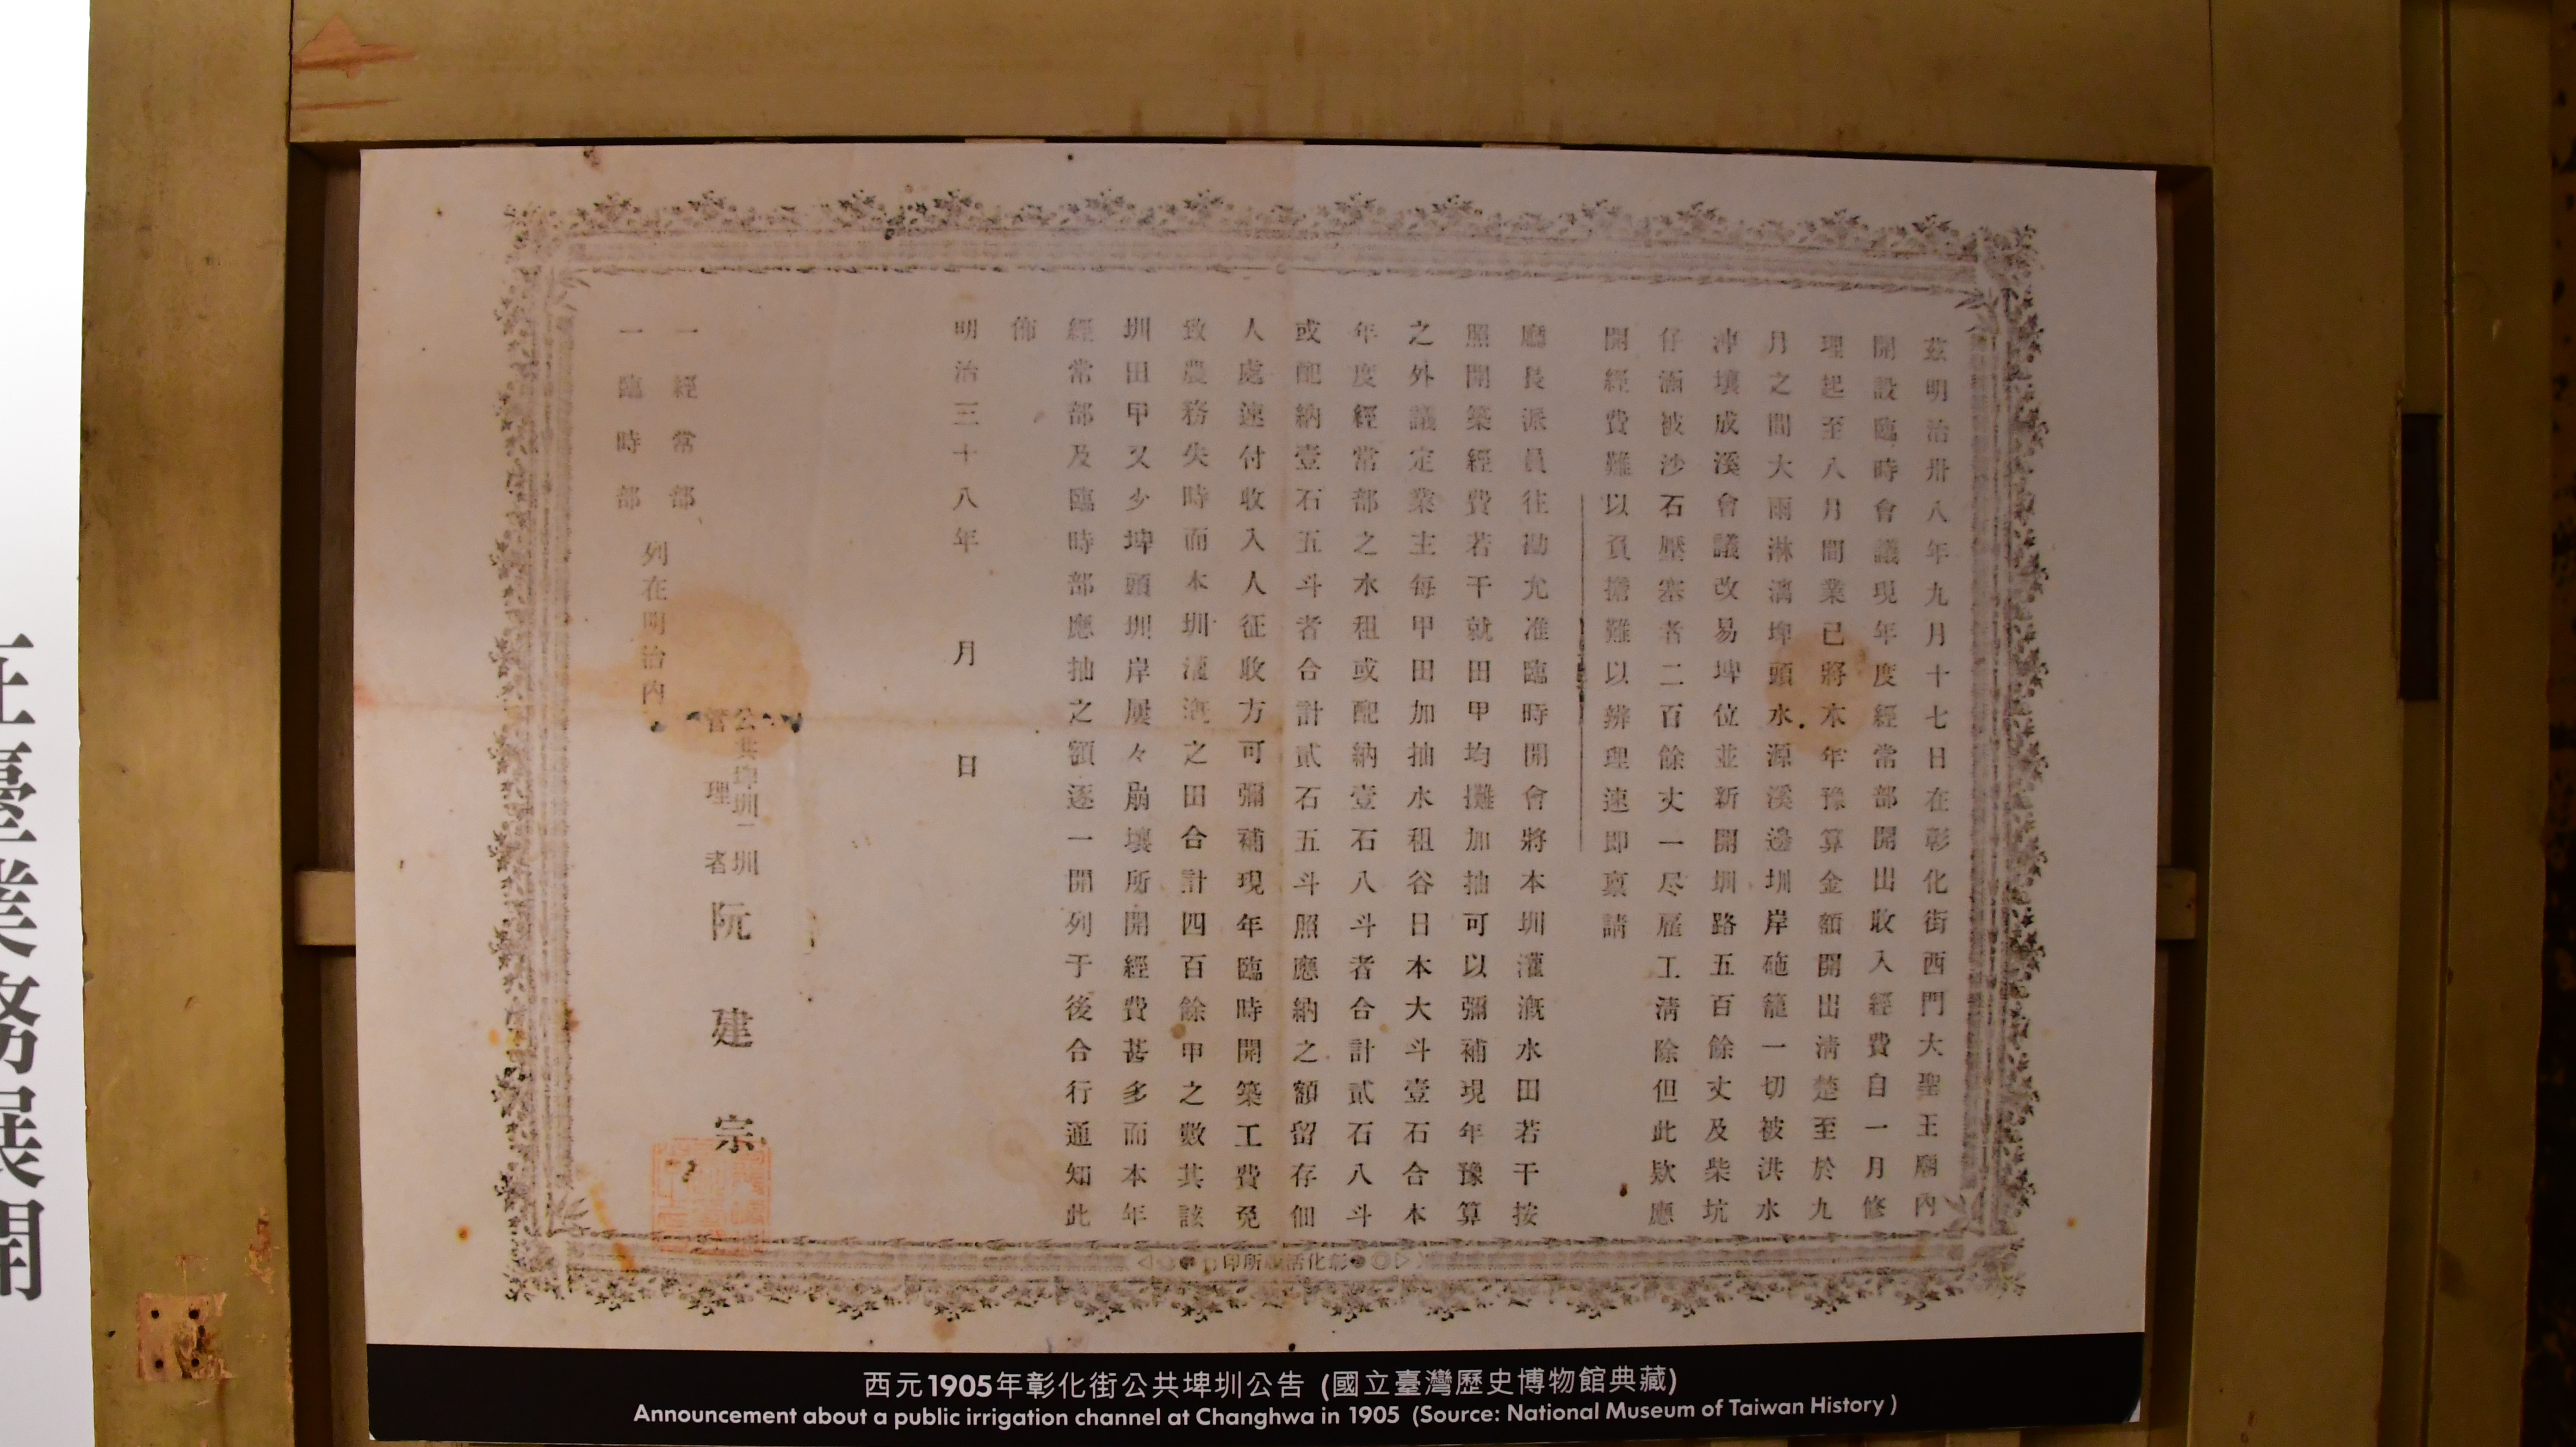 茲明治卅八年九月十七日在彰化街西門大聖王廟內
開設臨時會議現年度經常部開出收入經費自一月修
理起至八月間業已將本年豫算金額開出清楚至於九
月之間大雨淋漓埤頭水源溪邊圳岸砤籠一切被洪水
沖壞成溪會議改易埤位並新開圳路五百餘丈及柴坑
仔涵被沙石壓塞者二百餘丈一尽雇工清除但此欵應
開經費難以負擔難以辨理速即稟請
廳長派員往勘允准臨時開會將本圳灌漑水田若干按
照開築經費若干就田甲均攤加抽可以彌補現年豫算
之外議定業主每甲田加抽水租谷日本大斗壹石合本
年度經常部之水租或配納壹石八斗者合計貳石八斗
或配納壹石五斗者合計貳石五斗照應納之額留存佃
人處速付收入人征收方可彌補現年臨時開築工費免
致農務失時而本圳灌漑之田合計四百餘甲之數其該
圳田甲又少埤頭圳岸屢々崩壞所開經費甚多而本年
經常部及臨時部應抽之額逐一開列于後合行通知此
佈
明治三十八年 月 日
公共埤圳二圳
管理者 阮建宗
一經常部
一臨時部
列在明治內
西元1905年彰化街公共埤圳公告 (國立臺灣歷史博物館典藏)
Announcement about a public irrigation channel at Changhwa in 1905 (Source: National Museum of Taiwan History )